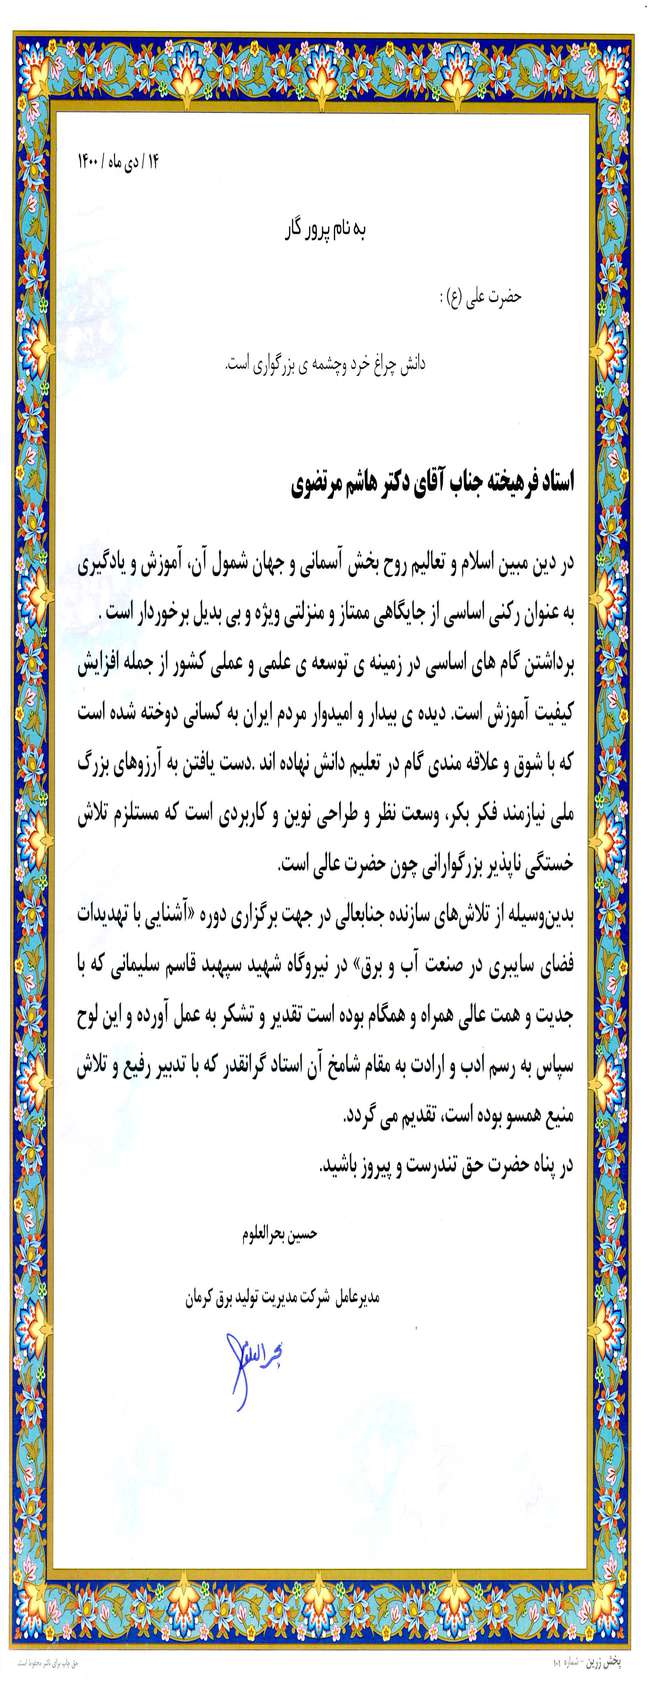 ۱۴ / دی ماه / ۱۴۰۰
به نام پرور گار
حضرت علی (ع) :
دانش چراغ خرد وچشمه ی بزرگواری است.
استاد فرهیخته جناب آقای دکتر هاشم مرتضوی
در دین مبین اسلام و تعالیم روح بخش آسمانی و جهان شمول آن، آموزش و یادگیری
به عنوان رکنی اساسی از جایگاهی ممتاز و منزلتی ویژه و بی بدیل برخوردار است .
برداشتن گام های اساسی در زمینه ی توسعه ی علمی و عملی کشور از جمله افزایش
کیفیت آموزش است. دیده ی بیدار و امیدوار مردم ایران به کسانی دوخته شده است
که با شوق و علاقه مندی گام در تعلیم دانش نهاده اند .دست یافتن به آرزوهای بزرگ
ملی نیازمند فکر بکر، وسعت نظر و طراحی نوین و کاربردی است که مستلزم تلاش
خستگی ناپذیر بزرگوارانی چون حضرت عالی است.
بدین‌وسیله از تلاش‌های سازنده جنابعالی در جهت برگزاری دوره «آشنایی با تهدیدات
فضای سایبری در صنعت آب و برق» در نیروگاه شهید سپهبد قاسم سلیمانی که با
جدیت و همت عالی همراه و همگام بوده است تقدیر و تشکر به عمل آورده و این لوح
سپاس به رسم ادب و ارادت به مقام شامخ آن استاد گرانقدر که با تدبیر رفیع و تلاش
منیع همسو بوده است، تقدیم می گردد.
در پناه حضرت حق تندرست و پیروز باشید.
حسین بحرالعلوم
مدیرعامل شرکت مدیریت تولید برق کرمان
بحرالعلوم
پخش زرین - شماره ۱۰۱
حق چاپ برای ناشر محفوظ است